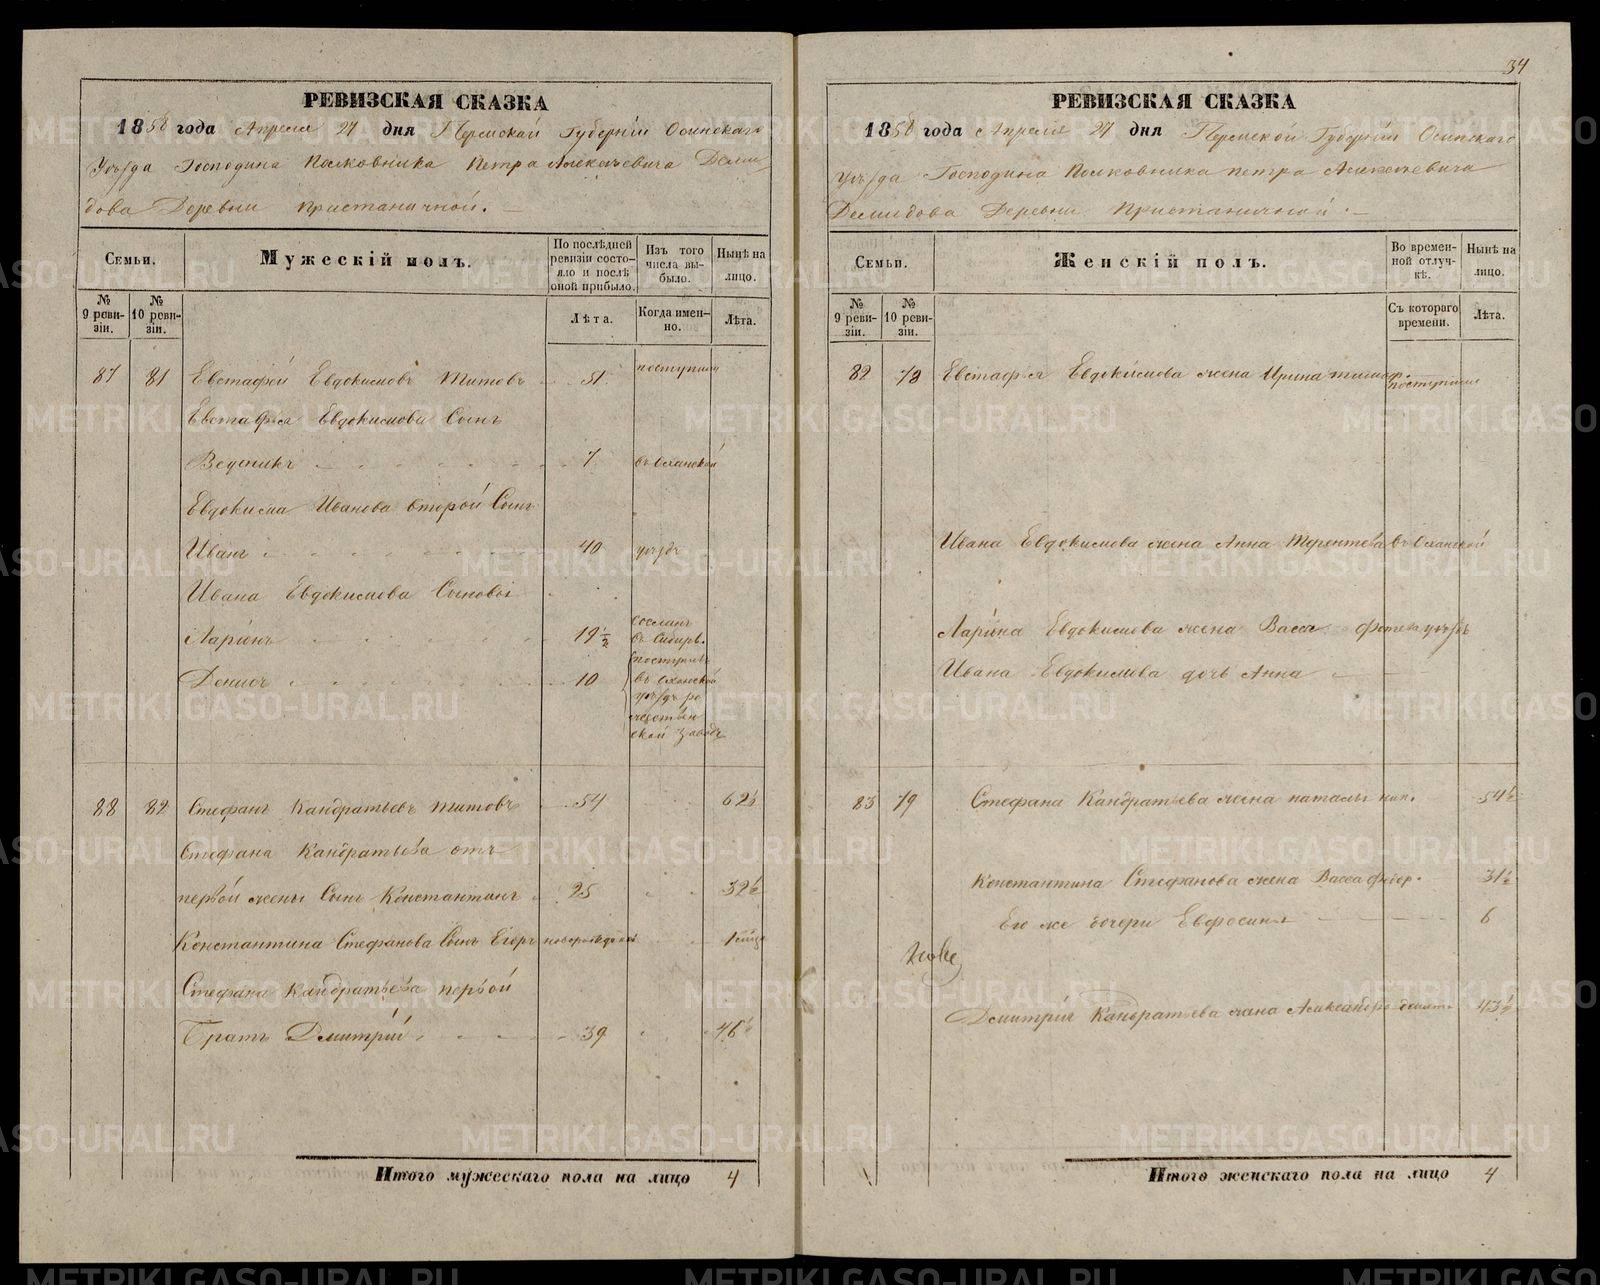 34
РЕВИЗСКАЯ СКАЗКА
1858 года Апреля 27 дня Пермской Губерніи Осинскаго
Уѣзда Господина Полковника Петра Алексеевича Деми
дова Деревни Пристаничной.
Семьи.
Мужескій полъ.
По послѣдней ревизіи состояло и послѣ оной прибыло.
Изъ того числа выбыло.
Нынѣ на лицо.
№ 9 ревизіи.
№ 10 ревизіи.
Лѣта.
Когда именно.
Лѣта.
87 81 Евстафей Евдокимовъ Титовъ 51 поступили
Евстафья Евдокимова Сынъ
7 въ Оханской
Евдокима Иванова второй Сынъ
Иванъ 40 уѣздъ
Ивана Евдокимова Сыновья
Ларіонъ 19½ сосланъ въ Сибирь.
Денисъ 10 поступилъ
въ Оханской
уѣздъ ро
ждествен
ской заводъ
88 82 Стефанъ Кандратьевъ Титовъ 54 62½
Стефана Кандратьева отъ
первой жены Сынъ Константинъ 25 32½
Константина Стефанова Сынъ Егоръ новорожденной
Стефана Кандратьева первой
Братъ Дмитрій 39 46½
Итого мужескаго пола на лицо 4
РЕВИЗСКАЯ СКАЗКА
1858 года Апреля 27 дня Пермской Губерніи Осинскаго
Уѣзда Господина Полковника Петра Алексеевича
Демидова Деревни Пристаничной.
Семьи.
Женскій полъ.
Во временной отлучкѣ.
Нынѣ на лицо.
№ 9 ревизіи.
№ 10 ревизіи.
Съ котораго времени.
Лѣта.
82 78 Евстафья Евдокимова жена Ирина поступили
Ивана Евдокимова жена Анна Терентева въ Оханской
Ларіона Евдокимова жена Васса уѣздъ
Ивана Евдокимова дочь Анна
83 79 Стефана Кандратьева жена Наталья 54½
Константина Стефанова жена Васса Федор. 31½
Его же дочери Евфросинья 6
Дмитрія Кандратьева жена Александра 43½
Итого женскаго пола на лицо 4
METRIKI.GASO-URAL.RU